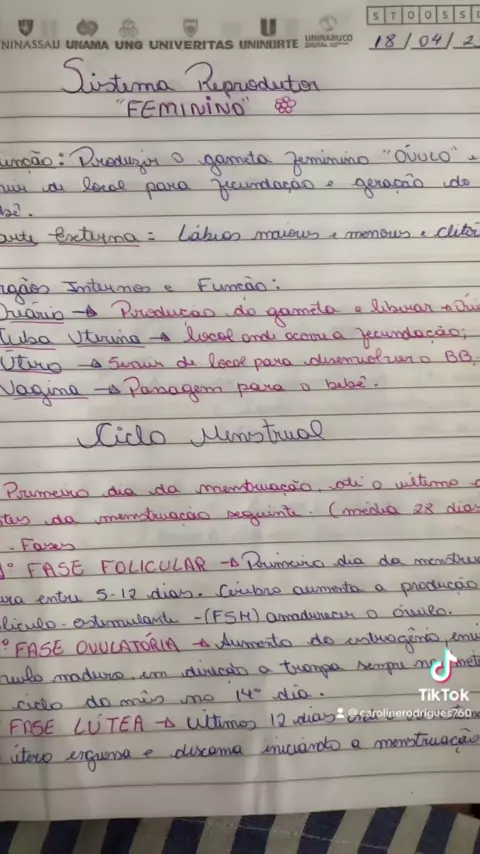 NINASSAU UNAMA UNG UNIVERITAS UNINORTE UNINABUCO DIGITAL
S T O O S S D
18/04/2
Sistema Reprodutor
"FEMININO"
unção: Produzir o gameta feminino "ÓVULO" e
de local para fecundação e geração do
bê.
arte Externa = Lábios maiores e menores e clitó
rgãos Internos e Função:
Ovário → Produção do gameta e liberar →
Tuba Uterina → local onde ocorre a fecundação;
Útero → Servir de local para desenvolver o BB.
Vagina → Passagem para o bebê.
Ciclo Menstrual
Primeiro dia da menstruação, até o ultimo
tes da menstruação seguinte. (média 28 dias
- Fases
1º FASE FOLICULAR → Primeiro dia da menstru
ura entre 5-12 dias. Cérebro aumenta a produção
olículo-estimulante -(FSH) amadurecer o óvulo.
º FASE OVULATÓRIA → Aumento do estrogênio,
vulo maduro em direção a trompa sempre na met
ciclo do mês no 14º dia.
FASE LÚTEA → Ultimos 12 dias
útero engrossa e descama iniciando a menstruação
TikTok
@carolinerodrigues760